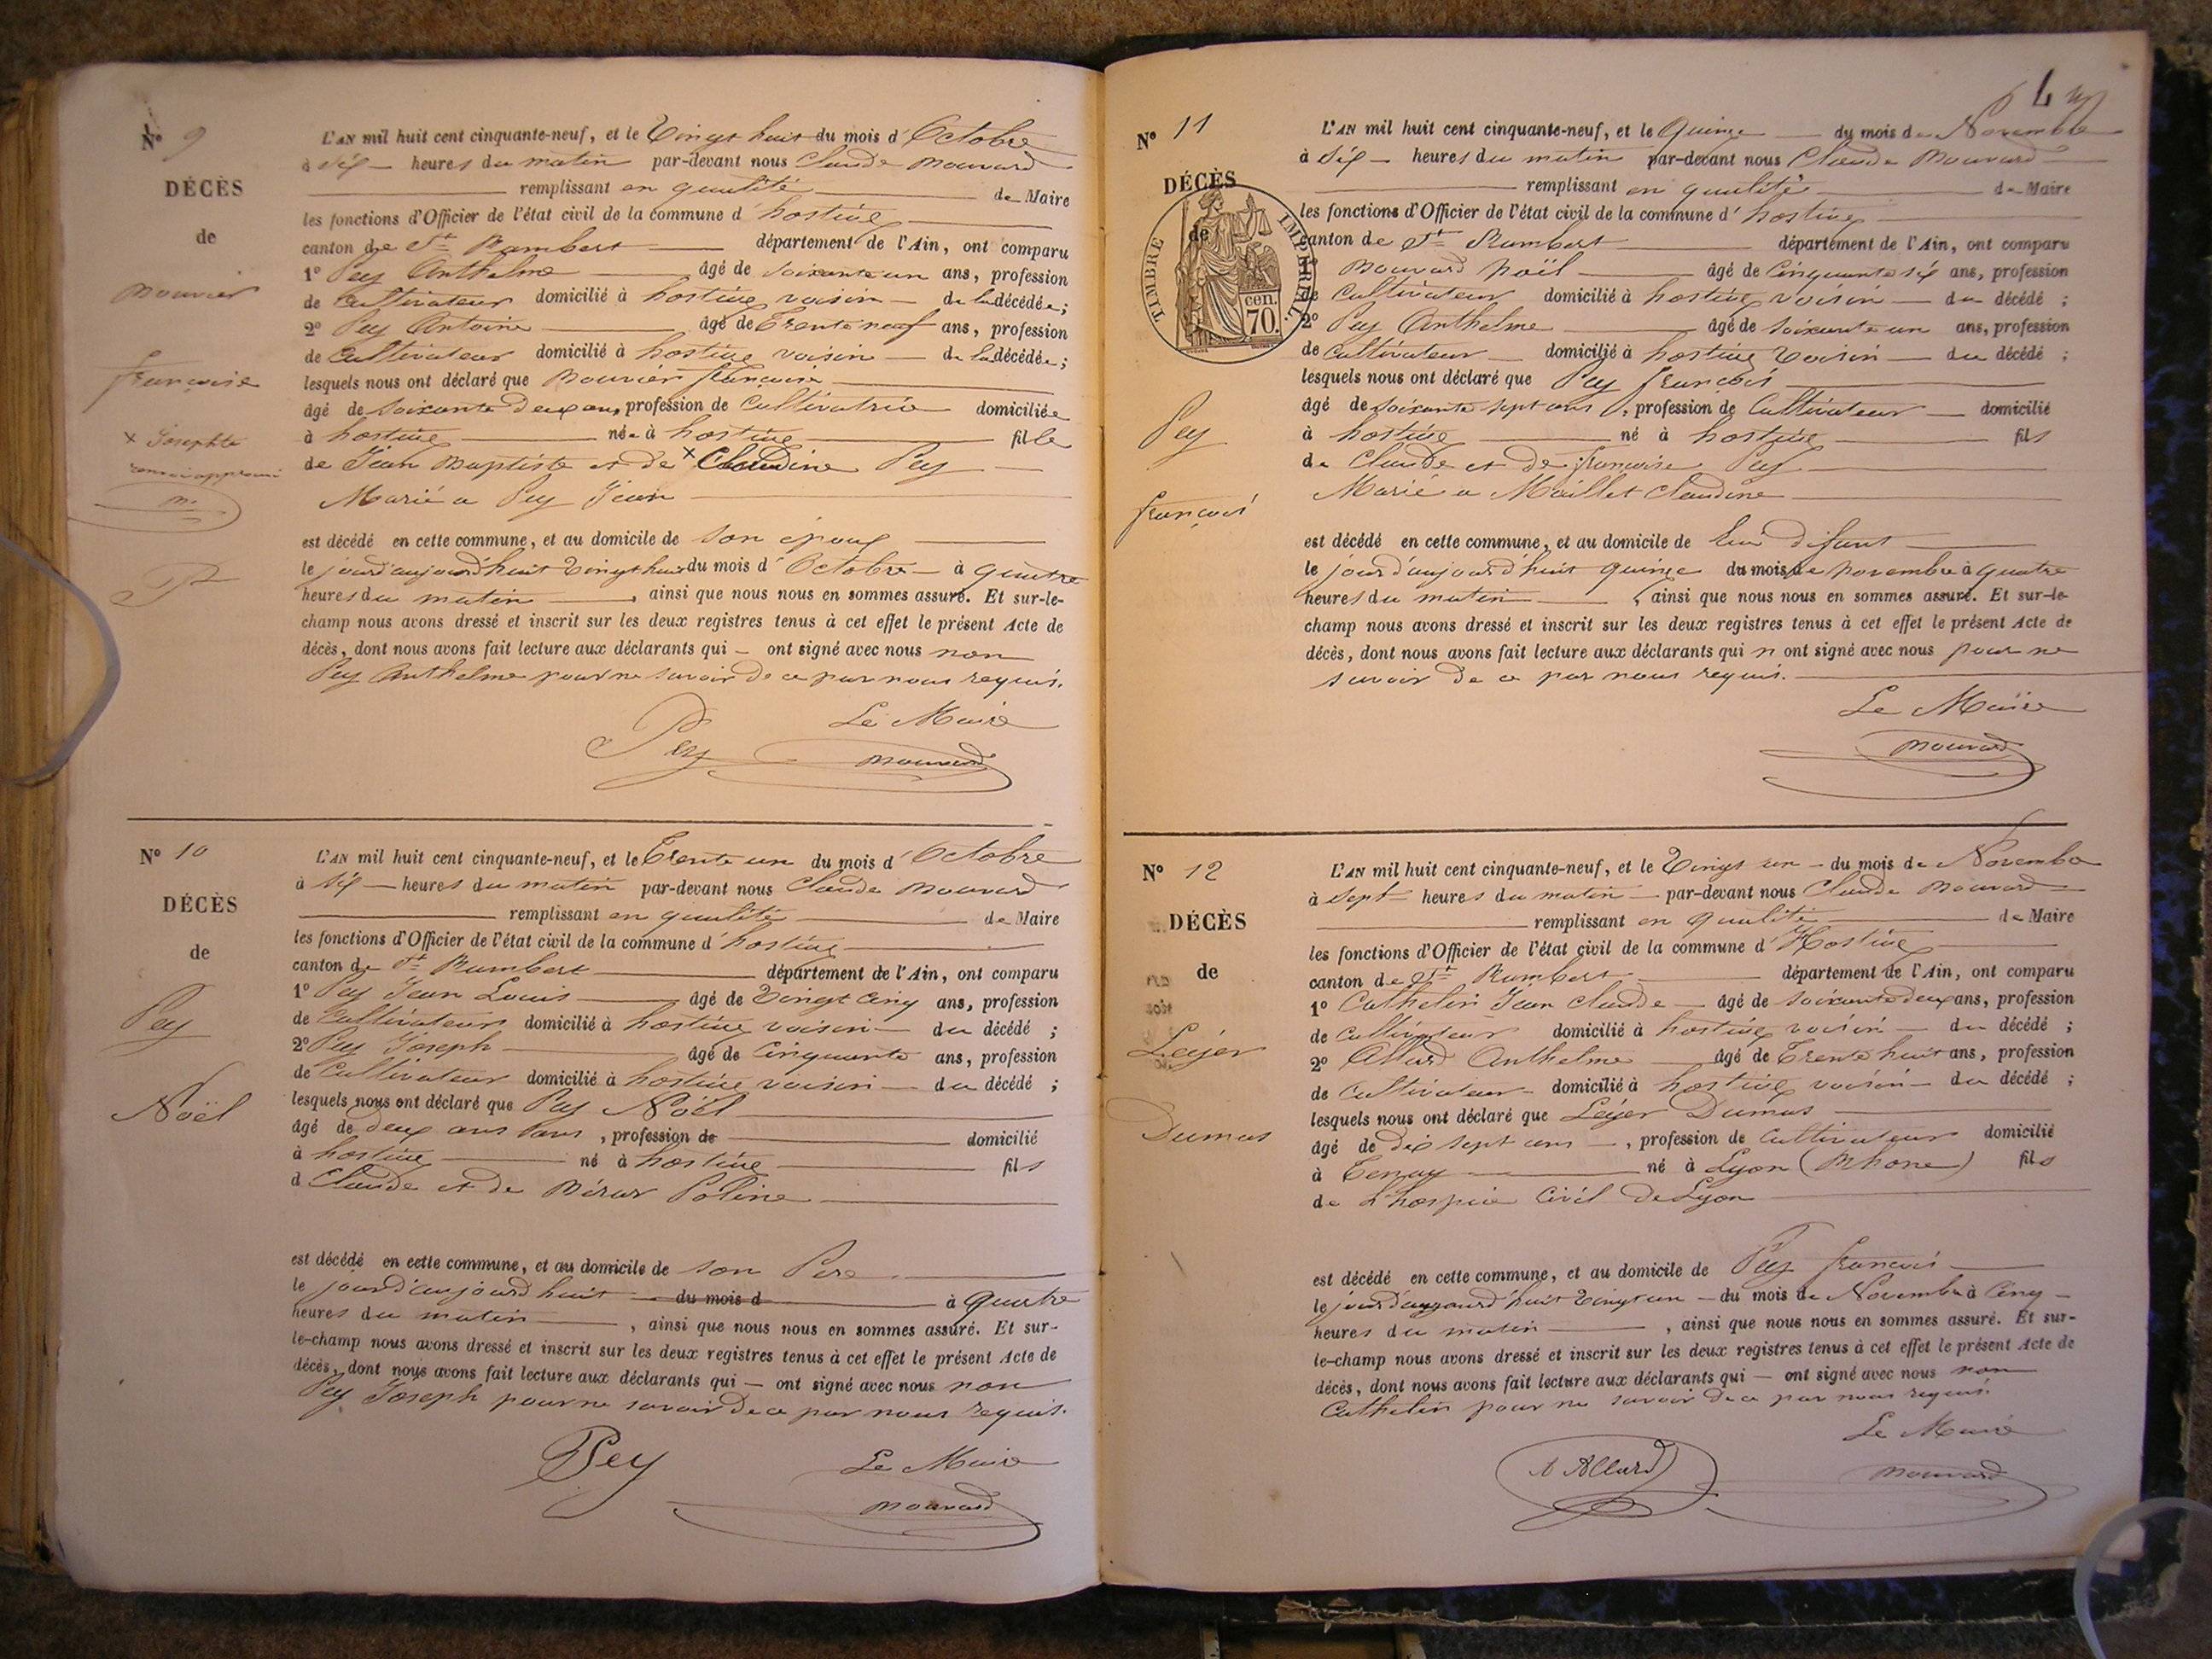 N° 9
DÉCÈS
de
Bouvier
françoise
x Josephte
renvoi approuvé
L'AN mil huit cent cinquante-neuf, et le Vingt huit du mois d'Octobre
à Six heures du matin par-devant nous Claude Bouvard
remplissant en qualité de Maire
les fonctions d'Officier de l'état civil de la commune d'hostiaz
canton de St Rambert département de l'Ain, ont comparu
1° Pey Anthelme âgé de soixante un ans, profession
de Cultivateur domicilié à hostiaz voisin de la décédée;
2° Pey Antoine âgé de Trente neuf ans, profession
de Cultivateur domicilié à hostiaz voisin de la décédée;
lesquels nous ont déclaré que Bouvier françoise
âgé de soixante deux ans, profession de Cultivatrice domiciliée
à hostiaz née à hostiaz fille
de Jean Baptiste et de x Claudine Pey
Marié a Pey Jean
est décédé en cette commune, et au domicile de Son époux
le jourd'aujourd'huit Vingt huit du mois d'Octobre à quatre
heures du matin, ainsi que nous nous en sommes assuré. Et sur-le-
champ nous avons dressé et inscrit sur les deux registres tenus à cet effet le présent Acte de
décès, dont nous avons fait lecture aux déclarants qui — ont signé avec nous non
Pey Anthelme pour ne savoir de ce par nous requis.
Le Maire
Pey Bouvard
N° 10
DÉCÈS
de
Pey
Noël
L'AN mil huit cent cinquante-neuf, et le Trente un du mois d'Octobre
à Six heures du matin par-devant nous Claude Bouvard
remplissant en qualité de Maire
les fonctions d'Officier de l'état civil de la commune d'hostiaz
canton de St Rambert département de l'Ain, ont comparu
1° Pey Jean Louis âgé de Vingt cinq ans, profession
de Cultivateur domicilié à hostiaz voisin du décédé ;
2° Pey Joseph âgé de Cinquante ans, profession
de Cultivateur domicilié à hostiaz voisin du décédé ;
lesquels nous ont déclaré que Pey Noël
âgé de deux ans, profession de domicilié
à hostiaz né à hostiaz fils
d Claude et de Poline
est décédé en cette commune, et au domicile de son Pere
le jourd'aujourd'huit du mois d à quatre
heures du matin, ainsi que nous nous en sommes assuré. Et sur-
le-champ nous avons dressé et inscrit sur les deux registres tenus à cet effet le présent Acte de
décès, dont nous avons fait lecture aux déclarants qui — ont signé avec nous non
Pey Joseph pour ne savoir de ce par nous requis.
Pey Le Maire
Bouvard
N° 11
DÉCÈS
de
TIMBRE IMPÉRIAL
70 cen.
Pey
françois
L'AN mil huit cent cinquante-neuf, et le Quinze du mois de Novembre
à Six heures du matin par-devant nous Claude Bouvard
remplissant en qualité de Maire
les fonctions d'Officier de l'état civil de la commune d'hostiaz
canton de St Rambert département de l'Ain, ont comparu
1° Bouvard Noël âgé de Cinquante six ans, profession
de Cultivateur domicilié à hostiaz voisin du décédé ;
2° Pey Anthelme âgé de soixante un ans, profession
de Cultivateur domicilié à hostiaz Voisin du décédé ;
lesquels nous ont déclaré que Pey françois
âgé de soixante sept ans, profession de Cultivateur domicilié
à hostiaz né à hostiaz fils
de Claude et de françoise Pey
Marié a Maillet Claudine
est décédé en cette commune, et au domicile de Lui difunt
le jour d'aujourd'huit quinze du mois de novembre à quatre
heures du matin, ainsi que nous nous en sommes assuré. Et sur-le-
champ nous avons dressé et inscrit sur les deux registres tenus à cet effet le présent Acte de
décès, dont nous avons fait lecture aux déclarants qui n ont signé avec nous pour ne
savoir de ce par nous requis.
Le Maire
Bouvard
N° 12
DÉCÈS
de
Lejer
Dumas
L'AN mil huit cent cinquante-neuf, et le Vingt un du mois de Novembre
à Sept heures du matin par-devant nous Claude Bouvard
remplissant en qualité de Maire
les fonctions d'Officier de l'état civil de la commune d'Hostiaz
canton de St Rambert département de l'Ain, ont comparu
1° Cathelin Jean Claude âgé de soixante deux ans, profession
de Cultivateur domicilié à hostiaz voisin du décédé ;
2° Allard Anthelme âgé de Trente huit ans, profession
de Cultivateur domicilié à hostiaz voisin du décédé ;
lesquels nous ont déclaré que Lejer Dumas
âgé de dix sept ans, profession de Cultivateur domicilié
à Tenay né à Lyon (Rhone) fils
de L'hospice Civil de Lyon
est décédé en cette commune, et au domicile de Pey françois
le jourd'aujourd'huit Vingt un du mois de Novembre à Cinq
heures du matin, ainsi que nous nous en sommes assuré. Et sur-
le-champ nous avons dressé et inscrit sur les deux registres tenus à cet effet le présent Acte de
décès, dont nous avons fait lecture aux déclarants qui — ont signé avec nous non
Cathelin pour ne savoir de ce par nous requis.
Le Maire
A Allard Bouvard